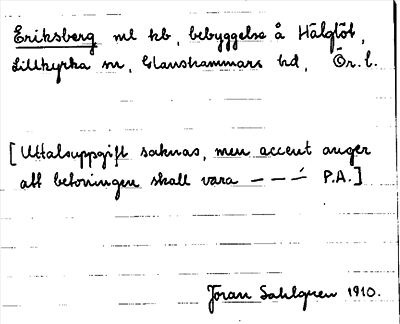 Eriksberg ml kb, bebyggelse å Hälgtöt,
Lillkyrka sn, Glanshammars hd, Ör. l.
[Uttalsuppgift saknas, men accent anger
att betoningen skall vara – – –́ P.A.]
Jöran Sahlgren 1910.